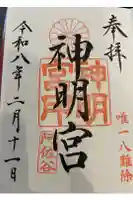 奉拝
唯一八難除
神明宮
神明宮
阿佐谷
令和八年二月十一日